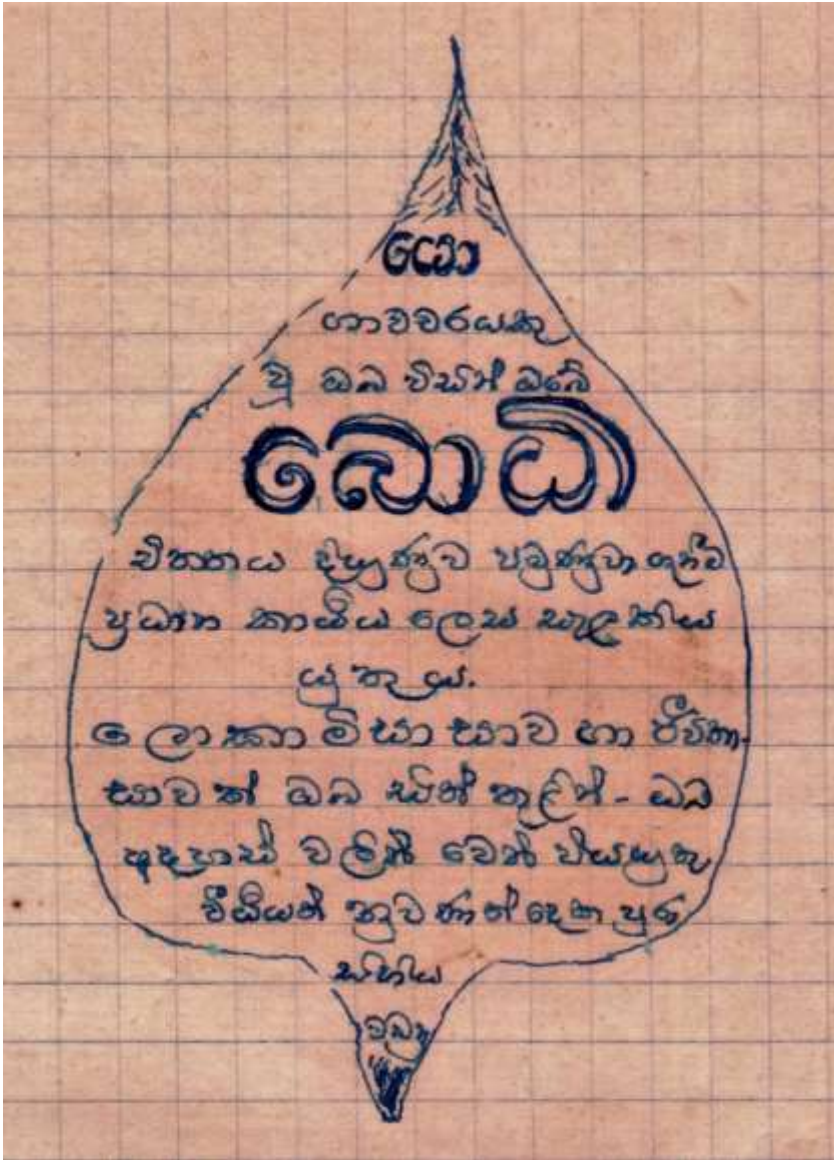 යො
ගාවචරයකු
වූ ඔබ විසින් ඔබේ
බොධි
චිත්තය දියුණුව පමුණුවා ගැනීම
ප්‍රධාන කාර්ය ලෙස සැලකිය
යුතු ය.
ලොකාමිසාසාව හා ජීවිතා-
සාවත් ඔබ සිත් තුළින් - ඔබ
අදහස් වලින් වෙන් වියයුතු
වීර්ය්‍යත් නුවණත් දෙක පුරා
සිහිය